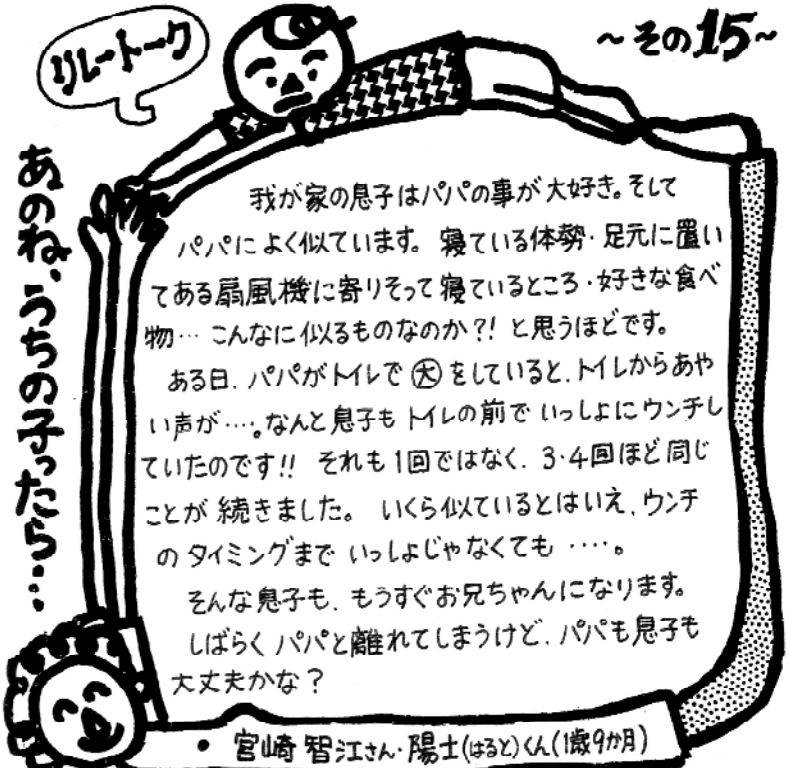 リレートーク
~その15~
あのね、うちの子ったら…
我が家の息子はパパの事が大好き。そして
パパによく似ています。寝ている体勢・足元に置い
てある扇風機に寄りそって寝ているところ・好きな食べ
物… こんなに似るものなのか?! と思うほどです。
ある日、パパがトイレで㊛をしていると、トイレからあや
い声が….。なんと息子もトイレの前でいっしょにウンチし
ていたのです!! それも1回ではなく、3・4回ほど同じ
ことが続きました。 いくら似ているとはいえ、ウンチ
のタイミングまでいっしょじゃなくても ‥‥。
そんな息子も、もうすぐお兄ちゃんになります。
しばらくパパと離れてしまうけど、パパも息子も
大丈夫かな?
・宮崎 智江さん・陽士(はると)くん(1歳9か月)